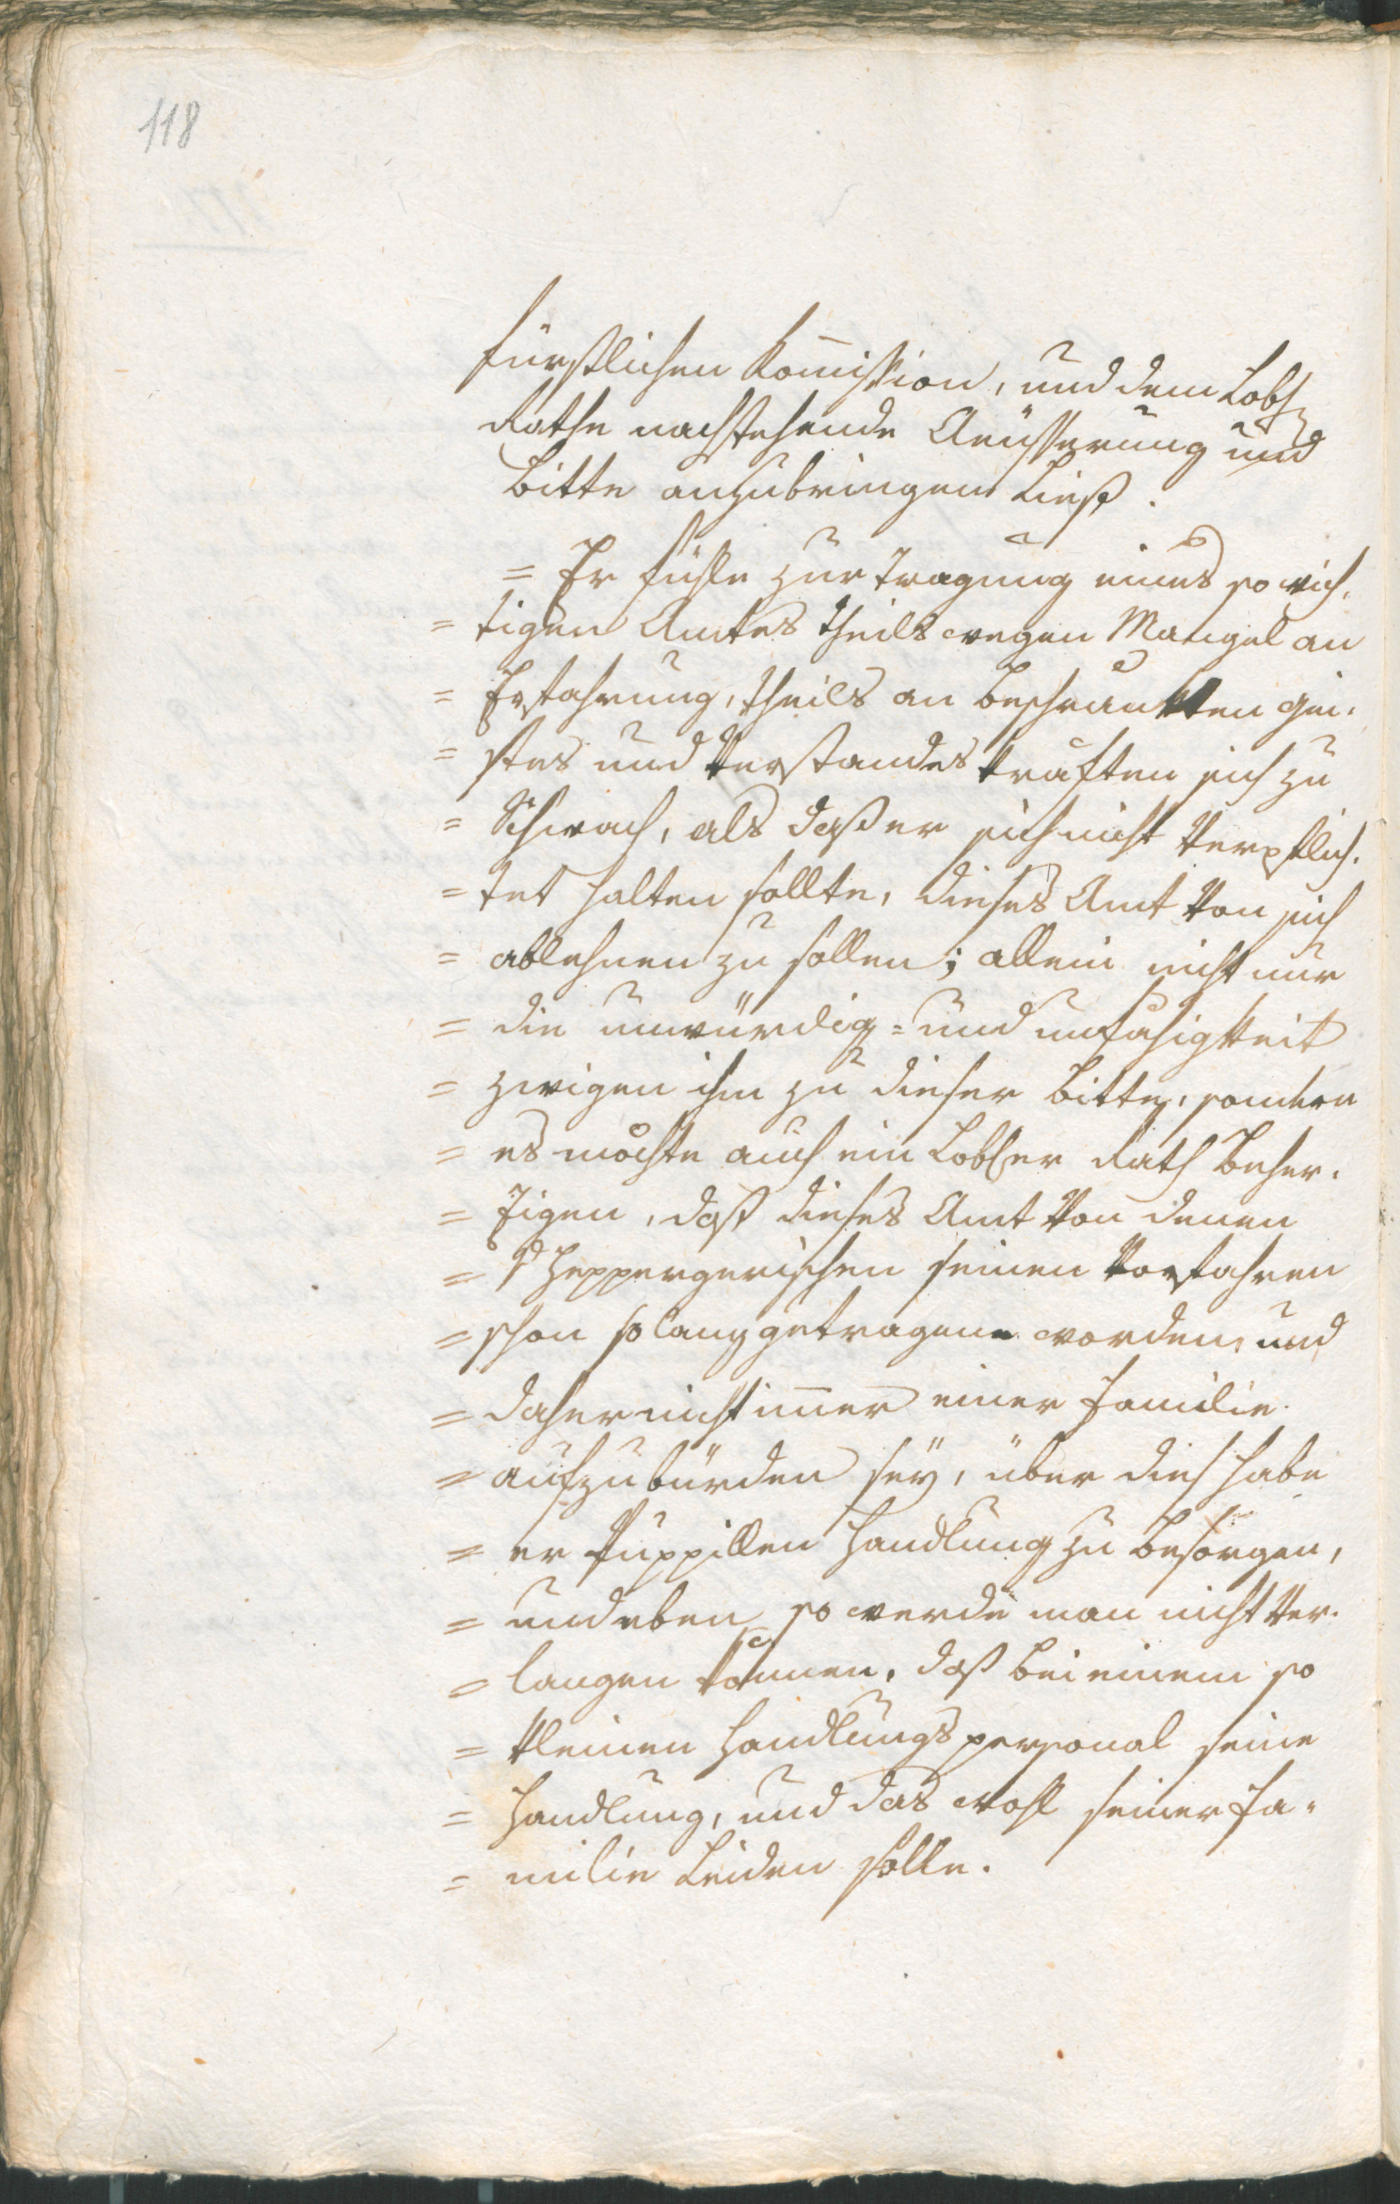 118
fürstlichen Kom̅ission, und dem Lobl
Rathe nachstehende Aeüsserung und
bitte anzubringen ließ.
= Er fühle zur Tragung eines so wich,
= tigen Amtes theils wegen Mangel an
= Erfahrung, theils an beschrankten gei,
= stes und Verstandes kraften sich zu
= Schwach, als daß er sich nicht Verpflich,
= tet halten sollte, dieses Amt Von sich
= ablehnen zu sollen; allein nicht nur
= die unwürdig = und unfähigkeit
= zwigen ihn zu dieser bitte, sondern
= es möchte auch ein Lobler Rath Beher,
= zigen, daß dieses Amt Von denen
= v Heppergerischen seinen Vorfahren
= schon so lang getragen worden, und
= daher nicht im̅er einer Familie
= aufzubürden seÿ, über dies habe
= er Puppillen Handlung zu besorgen,
= und eben so werde man nicht Ver,
= langen können, daß bei einem so
= kleinen Handlungs personal seine
= Handlung, und das wohl seiner Fa=
= milie Leiden solle.